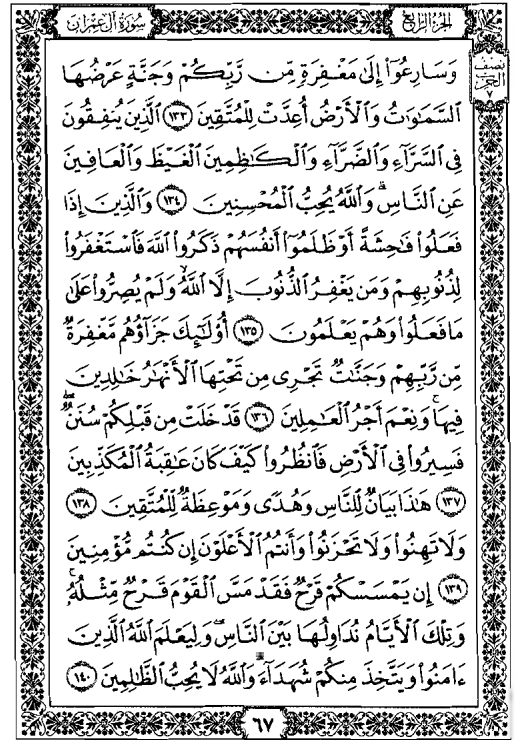 سُورَةُ آلِ عِمْرَان
الجُزْءُ الرَّابِعُ
نِصْف الحِزْب ٧
وَسَارِعُوٓاْ إِلَىٰ مَغْفِرَةٖ مِّن رَّبِّكُمْ وَجَنَّةٍ عَرْضُهَا
ٱلسَّمَٰوَٰتُ وَٱلْأَرْضُ أُعِدَّتْ لِلْمُتَّقِينَ ١٣٣ ٱلَّذِينَ يُنفِقُونَ
فِى ٱلسَّرَّآءِ وَٱلضَّرَّآءِ وَٱلْكَٰظِمِينَ ٱلْغَيْظَ وَٱلْعَافِينَ
عَنِ ٱلنَّاسِۗ وَٱللَّهُ يُحِبُّ ٱلْمُحْسِنِينَ ١٣٤ وَٱلَّذِينَ إِذَا
فَعَلُواْ فَٰحِشَةً أَوْ ظَلَمُوٓاْ أَنفُسَهُمْ ذَكَرُواْ ٱللَّهَ فَٱسْتَغْفَرُواْ
لِذُنُوبِهِمْ وَمَن يَغْفِرُ ٱلذُّنُوبَ إِلَّا ٱللَّهُ وَلَمْ يُصِرُّواْ عَلَىٰ
مَا فَعَلُواْ وَهُمْ يَعْلَمُونَ ١٣٥ أُوْلَٰٓئِكَ جَزَآؤُهُم مَّغْفِرَةٌ
مِّن رَّبِّهِمْ وَجَنَّٰتٌ تَجْرِى مِن تَحْتِهَا ٱلْأَنْهَٰرُ خَٰلِدِينَ
فِيهَاۚ وَنِعْمَ أَجْرُ ٱلْعَٰمِلِينَ ١٣٦ قَدْ خَلَتْ مِن قَبْلِكُمْ سُنَنٌ
فَسِيرُواْ فِى ٱلْأَرْضِ فَٱنظُرُواْ كَيْفَ كَانَ عَٰقِبَةُ ٱلْمُكَذِّبِينَ
١٣٧ هَٰذَا بَيَانٌ لِّلنَّاسِ وَهُدًى وَمَوْعِظَةٌ لِّلْمُتَّقِينَ ١٣٨
وَلَا تَهِنُواْ وَلَا تَحْزَنُواْ وَأَنتُمُ ٱلْأَعْلَوْنَ إِن كُنتُم مُّؤْمِنِينَ
١٣٩ إِن يَمْسَسْكُمْ قَرْحٌ فَقَدْ مَسَّ ٱلْقَوْمَ قَرْحٌ مِّثْلُهُۥۚ
وَتِلْكَ ٱلْأَيَّامُ نُدَاوِلُهَا بَيْنَ ٱلنَّاسِ وَلِيَعْلَمَ ٱللَّهُ ٱلَّذِينَ
ءَامَنُواْ وَيَتَّخِذَ مِنكُمْ شُهَدَآءَۗ وَٱللَّهُ لَا يُحِبُّ ٱلظَّٰلِمِينَ ١٤٠
٦٧